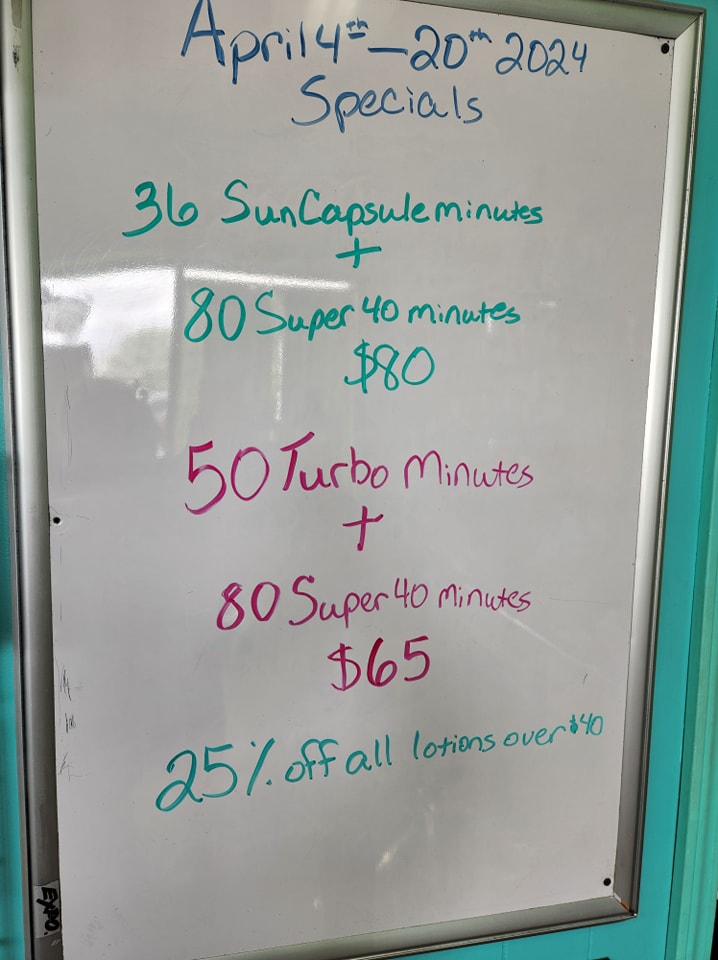 April 4th – 20th 2024
Specials
36 SunCapsule minutes
+
80 Super 40 minutes
$80
50 Turbo Minutes
+
80 Super 40 Minutes
$65
25% off all lotions over $40
EXPO